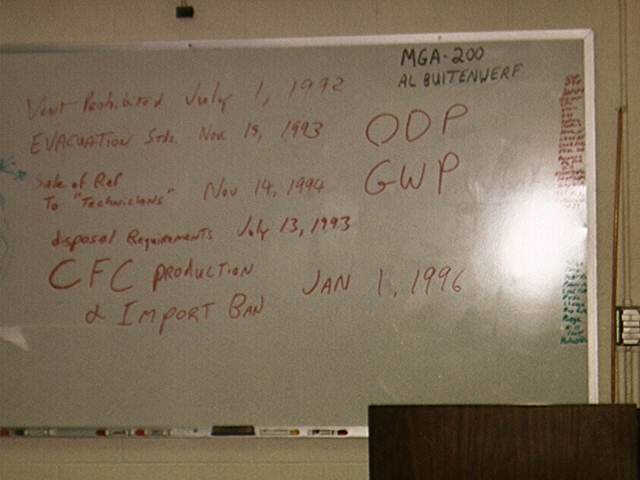 MGA-200
AL BUITENWERF
Vent Prohibited July 1, 1992
EVACUATION Stds. Nov 15, 1993
ODP
Sale of Ref
To "Technicians" Nov 14, 1994
GWP
disposal Requirements July 13, 1993
CFC PRODUCTION
& IMPORT BAN JAN 1, 1996